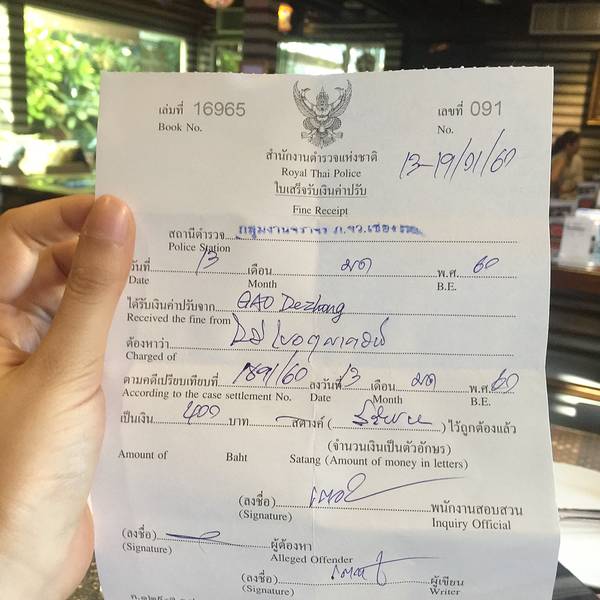 เล่มที่ 16965
Book No.
เลขที่ 091
No.
สำนักงานตำรวจแห่งชาติ
Royal Thai Police
13-19/01/60
ใบเสร็จรับเงินค่าปรับ
Fine Receipt
สถานีตำรวจ
Police Station
วันที่ 13 เดือน พ.ศ. 60
Date Month B.E.
ได้รับเงินค่าปรับจาก GAO Dezhong
Received the fine from
ต้องหาว่า
Charged of
ตามคดีเปรียบเทียบที่ 1891/60 ลงวันที่ 13 เดือน พ.ศ. 60
According to the case settlement No. Date Month B.E.
เป็นเงิน 400 บาท สตางค์ ( ) ไว้ถูกต้องแล้ว
(จำนวนเงินเป็นตัวอักษร)
Amount of Baht Satang (Amount of money in letters)
(ลงชื่อ) พนักงานสอบสวน
(Signature) Inquiry Official
(ลงชื่อ) ผู้ต้องหา
(Signature) Alleged Offender
(ลงชื่อ) ผู้เขียน
(Signature) Writer